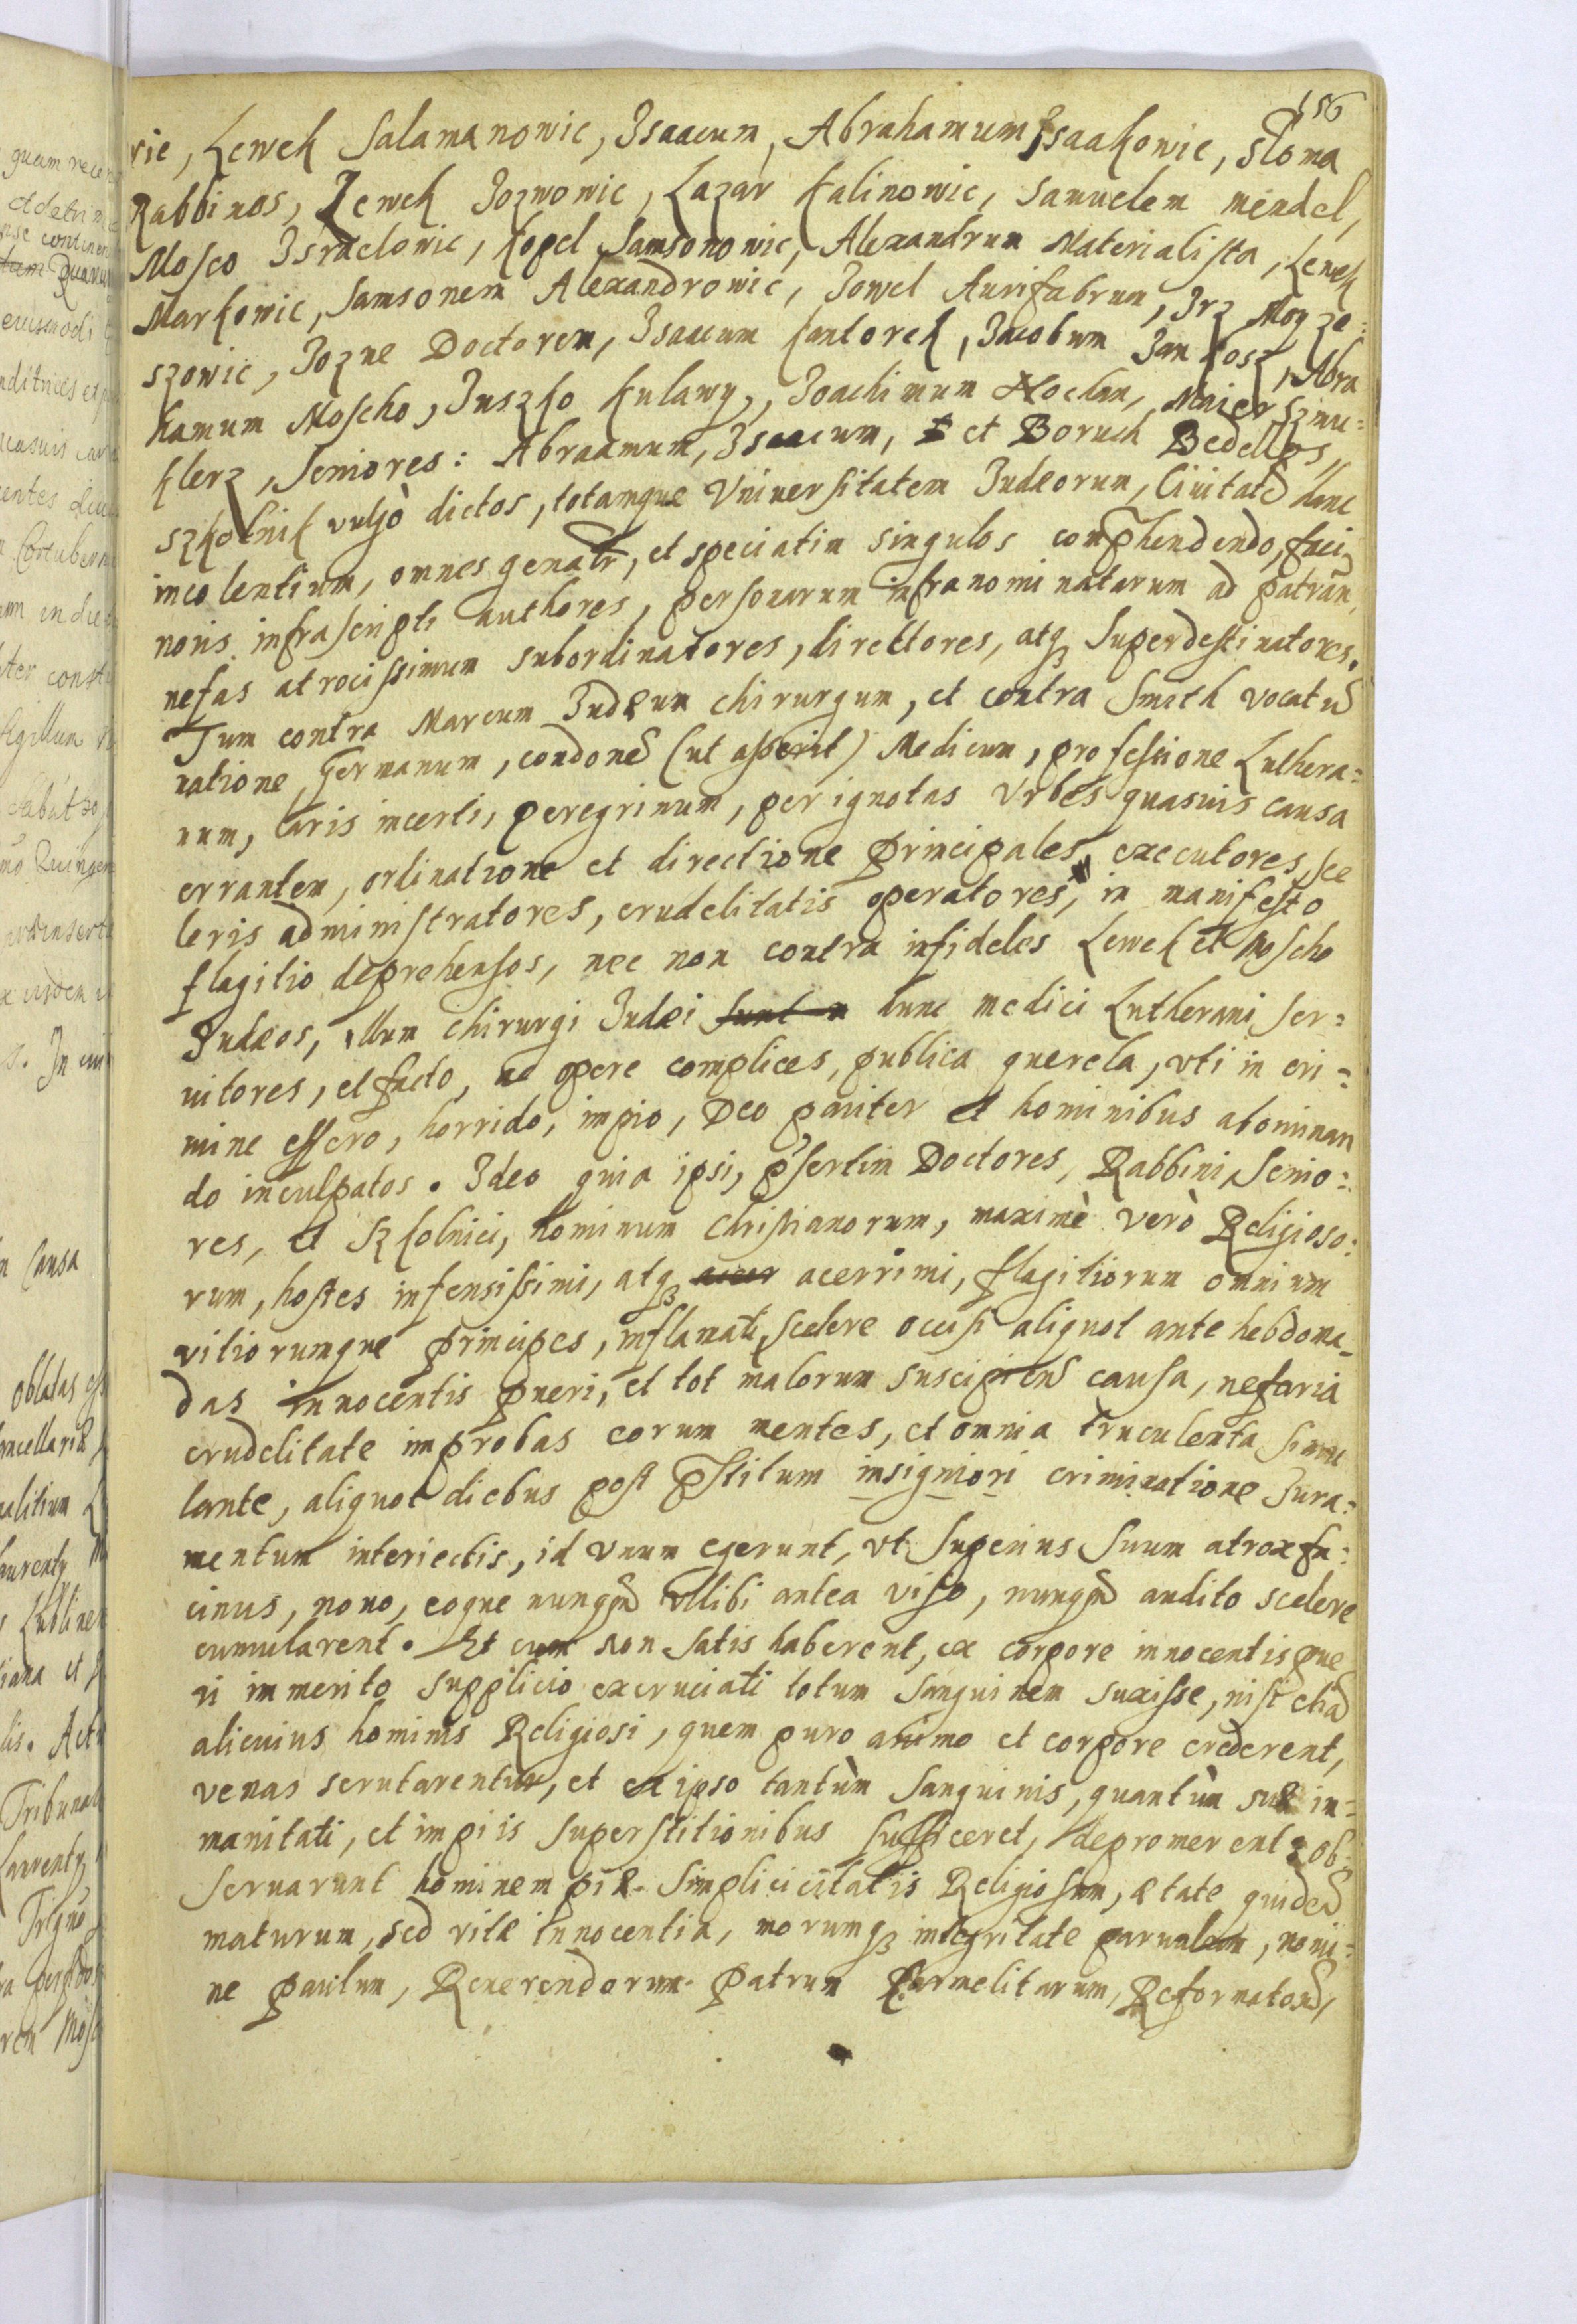 156
vic, Lewek Salamanowic, Isaacum, Abrahamum Isaakowic, Sloma
Rabbinos, Lewek Jozwowic, Lazar Kalinowic, Samuelem Mendel,
Mosco Israelowic, Kopel Samsonowic, Alexandrum Materialista, Lewek
Markowic, Samsonem Alexandrowic, Jowel Aurifabrum, Irz Moyze:
szowic, Jozue Doctorem, Isaacum Kantorek, Jacobum Jan kosz, Abra
hamum Moscho, Juszko Kulawy, Joachimum Nochem, Maier szmu:
klerz, Seniores: Abraamum, Isaacum, et Boruch Bedellos,
szkolnik vulgò dictos, totamque Vniuersitatem Judæorum, Ciuitatē hanc
incolentium, omnes genalr, et speciatim singulos comphendendo, faci
noris infrascripti authores, personarum infranominatarum ad patran,
nefas atrocissimum subordinatores, direktores, atq₃ superdestinatores.
Tum contra Marcum Judæum chirurgum, et contra Smith vocatū
natione Germanum, condonē (ut asserit) Medicum, professione Luthera:
num, laris incerti, peregrinum, per ignotas Vrbes quasuis causa
errantem, ordinatione et directione principales, executores, sce
leris administratores, crudelitatis operatores, in manifesto
flagitio deprehensos, nec non contra infideles Lewek et Moscho
Judæos, illum chirurgi Judæi hunc medici Lutherani ser:
uitores, et facto, ac opere complices, publica querela, vti in cri:
mine effero, horrido, impio, Deo pariter et hominibus abominan
do inculpatos. Ideo quia ipsi, p̄sertim Doctores, Rabbini, Senio:
res, et szkolnici, hominum christianorum, maximè verò Religioso:
rum, hostes infensissimi, atq₃ acerrimi, flagitiorum omnium
vitiorumque principes, inflamati, scelere occisi aliquot ante hebdoma_
das innocentis pueri, et tot malorum suscipiend causa, nefaria
crudelitate improbas eorum mentes, et omnia truculenta simu
lante, aliquot diebus post p̄stitum insigniori criminatione Jura:
mentum interiectis, id vnum egerunt, vt superius suum atrox fa:
cinus, nouo, eoque nunqm̄ vllibi antea viso, nunqm̄ audito scelere
cumularent. Et cum non satis haberent, ex corpore innocentis pue
ri immerito supplicio excruciati totum sanguinem suxisse, nisi etiā
alicuius hominis Religiosi, quem puro animo et corpore crederent,
venas scrutarentur, et ex ipso tantùm sanguinis, quantùm suæ im=
manitati, et impiis superstitionibus sufficeret, depromerent: ob:
seruarunt hominem piæ simplicicitatis Religiosum, ætate quidē
maturum, sed vitæ innocentia, morumq₃ integritate paruulum, nomi:
ne paulum, Reuerendorum patrum Carmelitarum, Reformatorū,